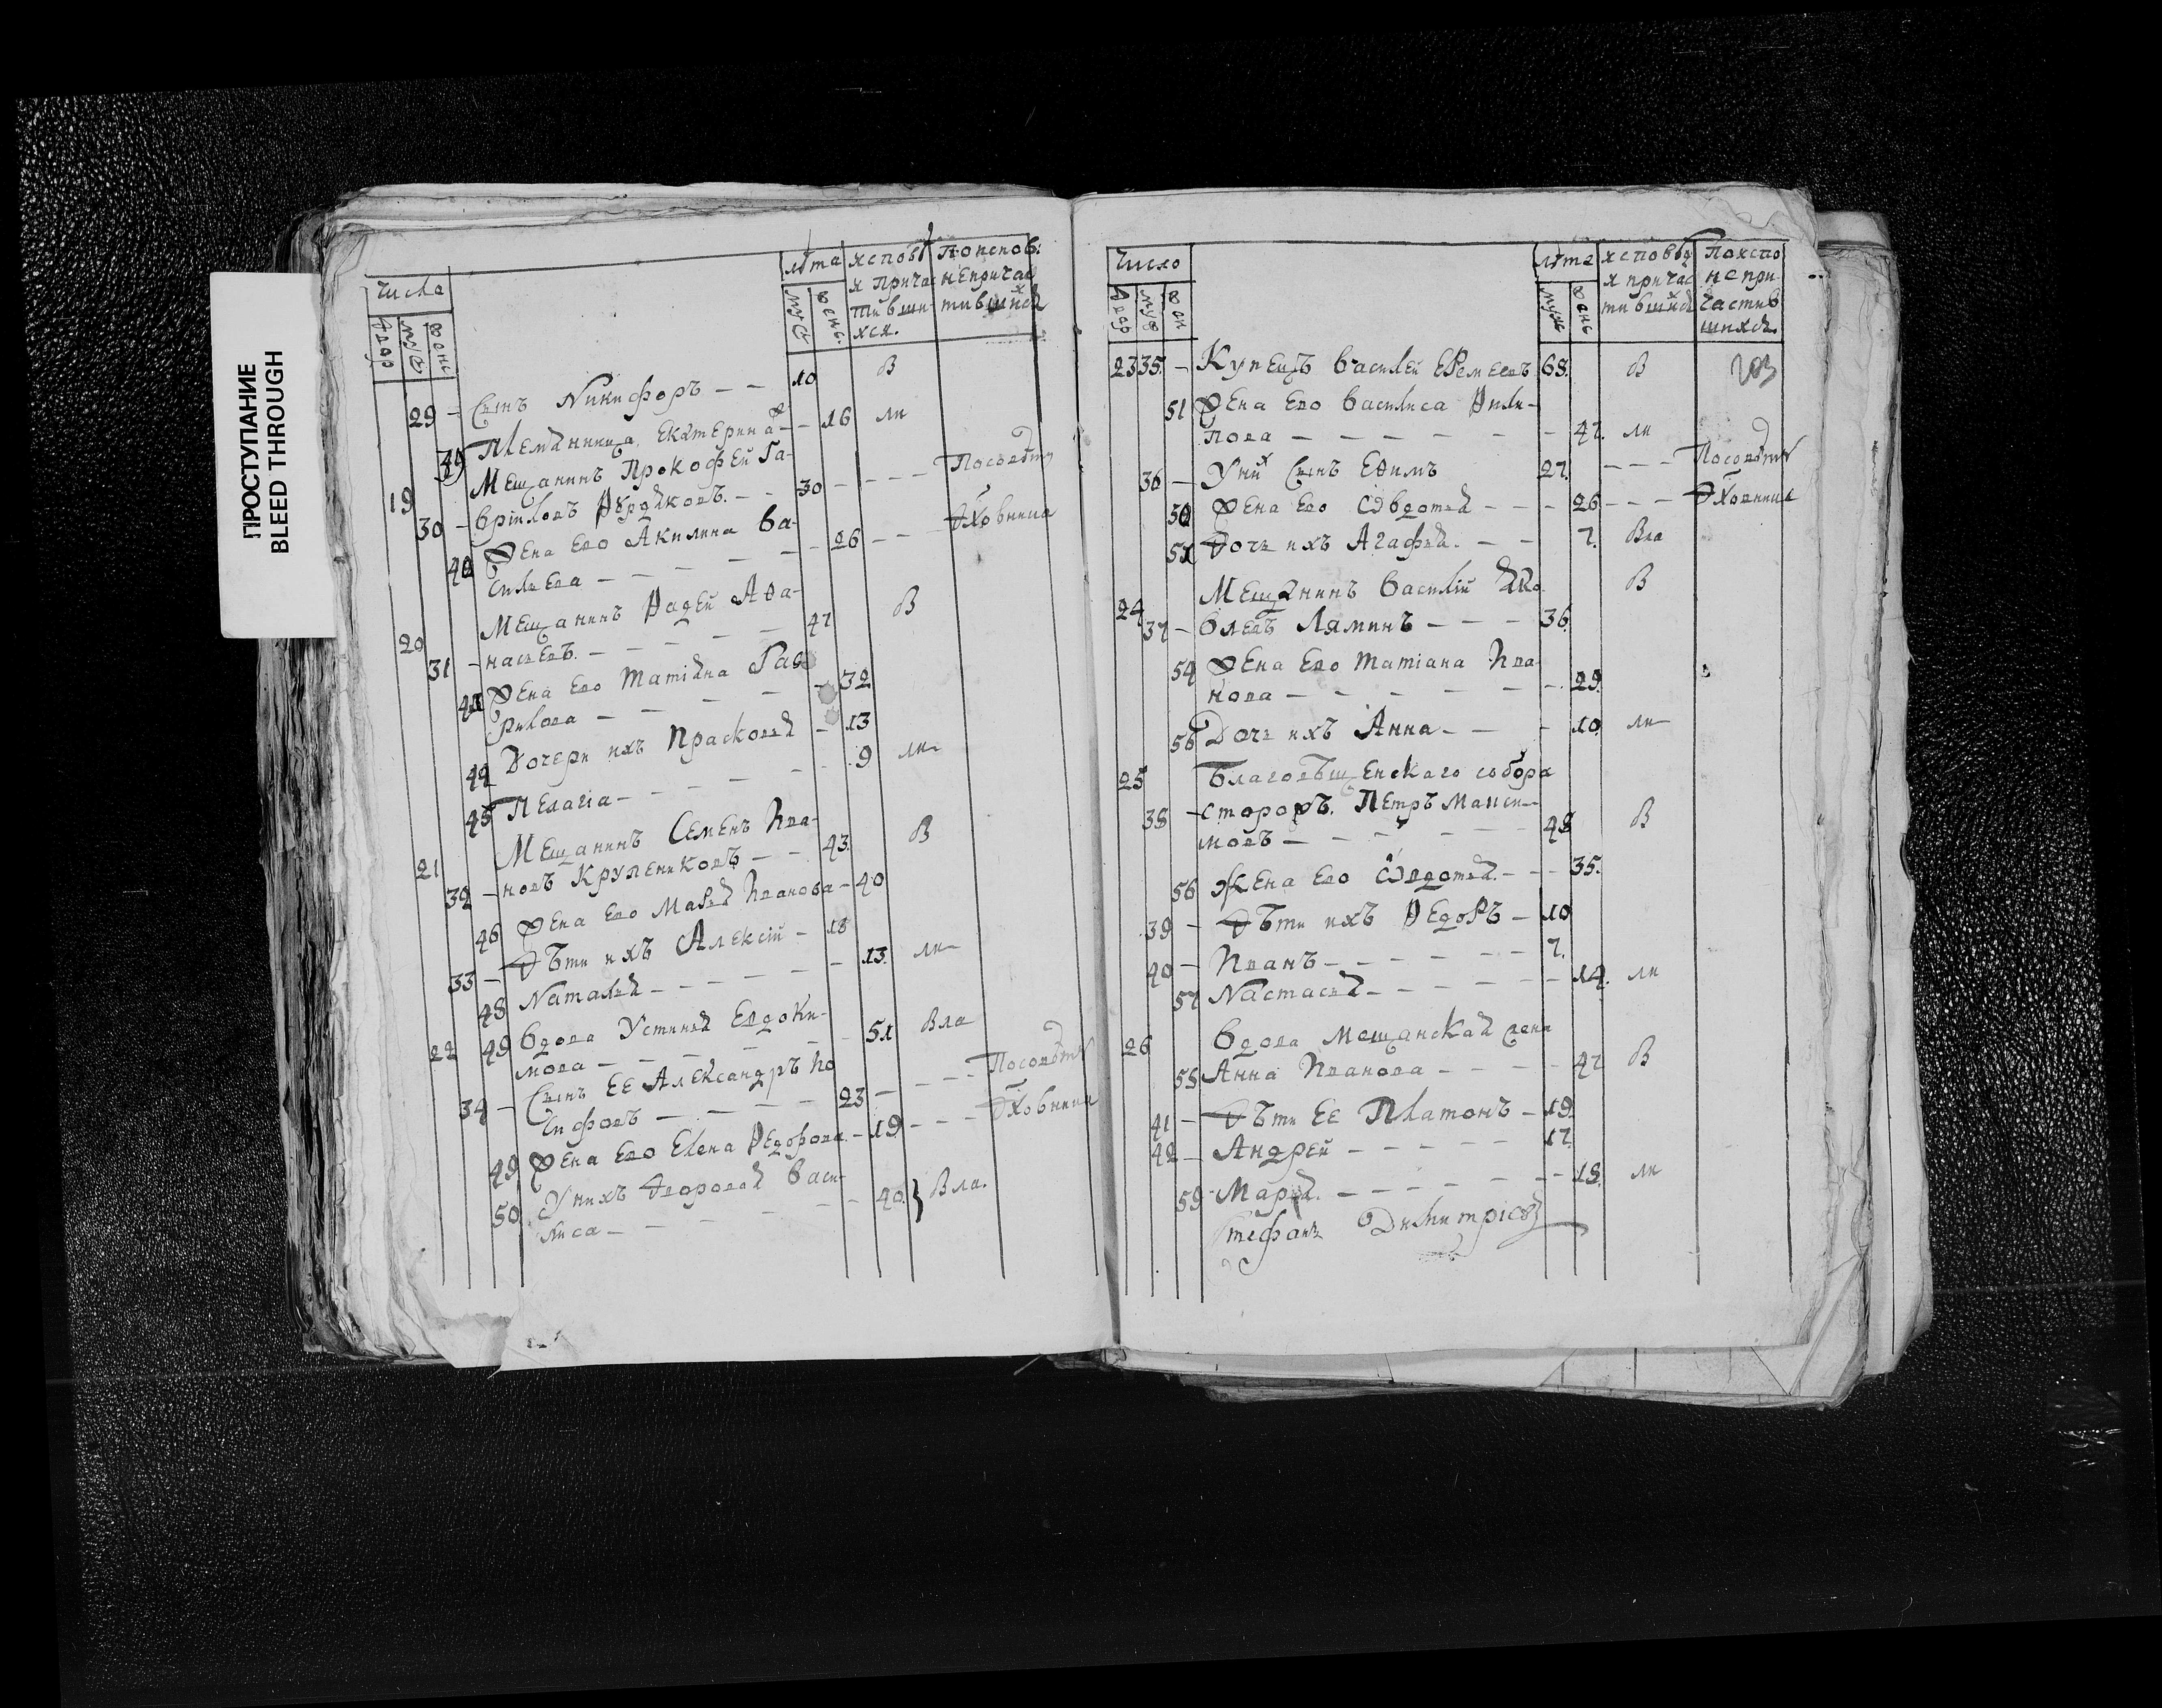 ПРОСТУПАНИЕ
BLEED THROUGH
числа
двор
муж
женс
лѣта
муж
женс
исповѣ
и прича
тивши
хся.
по испов:
не причас
тившихся
29 - Сынъ Никифоръ - - 10 В
Племянница Екатерина - - 16 ли
19 Мещанинъ Прокофей Га-
30 - вріиловъ - - 30 - - - - По совѣту
Жена ево Акилина Ва-
сильева - - - - - - 26 - - - духовника
20 Мещанинъ Фадей Афа-
31 - насьевъ. - - - - - 47 В
Жена ево Татіяна Гав
рилова - - - - - 32
Дочери ихъ Прасковья - 13
45 Пелагіа - - - - - 9 ли
21 Мещанинъ Семенъ Ива-
32 - новъ Крупениковъ - - 43. В
46 Жена ево Марья Иванова - 40
33 - Дѣти ихъ Алексій - 18
48 Наталья - - - - - - 13. ли
22 49 Вдова Устинья Евдоки-
мова - - - - - - 51 Вла
34 - Сынъ ее Александръ Ни
кифовъ - - - - 23 - - - - По совѣту
49 Жена ево Елена Федорова - 19 - - - духовника
50 У нихъ дворовая Васи-
лиса - - - - - - - 40. } Вла.
Число
двор
муж
жен
лѣта
муж
женс
исповѣд
и причас
тившихся
По испо
не при-
частив
шихся.
203
23 35. - Купецъ Василей Еремеевъ 68. В
51 Жена ево Василиса Фили-
пова - - - - - - - 47. ли
36 - У них сынъ Ефимъ 27. - - - По совѣту
52 Жена ево Євдотья - - - 26 - - - духовника
Дочь ихъ Агафья. - - 7. Вла
24 Мещанинъ Василій Яко
37 - влевъ Ляминъ - - - 36. В
54 Жена ево Татіана Ива
нова - - - - - - - 29.
Дочь ихъ Анна - - - 10 ли
25 Благовѣщенскаго собора
38 - сторожъ. Петръ Макси-
мовъ - - - - - 48 В
56 Жена ево Євдотья. - - 35.
39 - Дѣти ихъ Федоръ - 10
40 - Иванъ - - - - - - 7.
57 Настасья - - - - - - 14. ли
26 Вдова мещанская жена
58 Анна Иванова - - - - 47 В
41 - Дѣти ее Платонъ - 19.
42 - Андрей - - - - - 17.
59 - Марья. - - - - - - - 18. ли
Стефанъ Димитріевъ